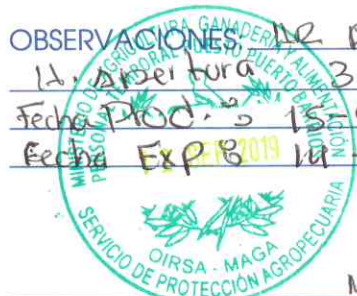 OBSERVACIONES:
H. Apertura 3
Fecha Prod. : 15-
Fecha Exp : 14
MINISTERIO DE AGRICULTURA, GANADERIA Y ALIMENTACION
PERSONAL LABORAL PUESTO, PUERTO BA
SEP 2019
OIRSA - MAGA
SERVICIO DE PROTECCIÓN AGROPECUARIA